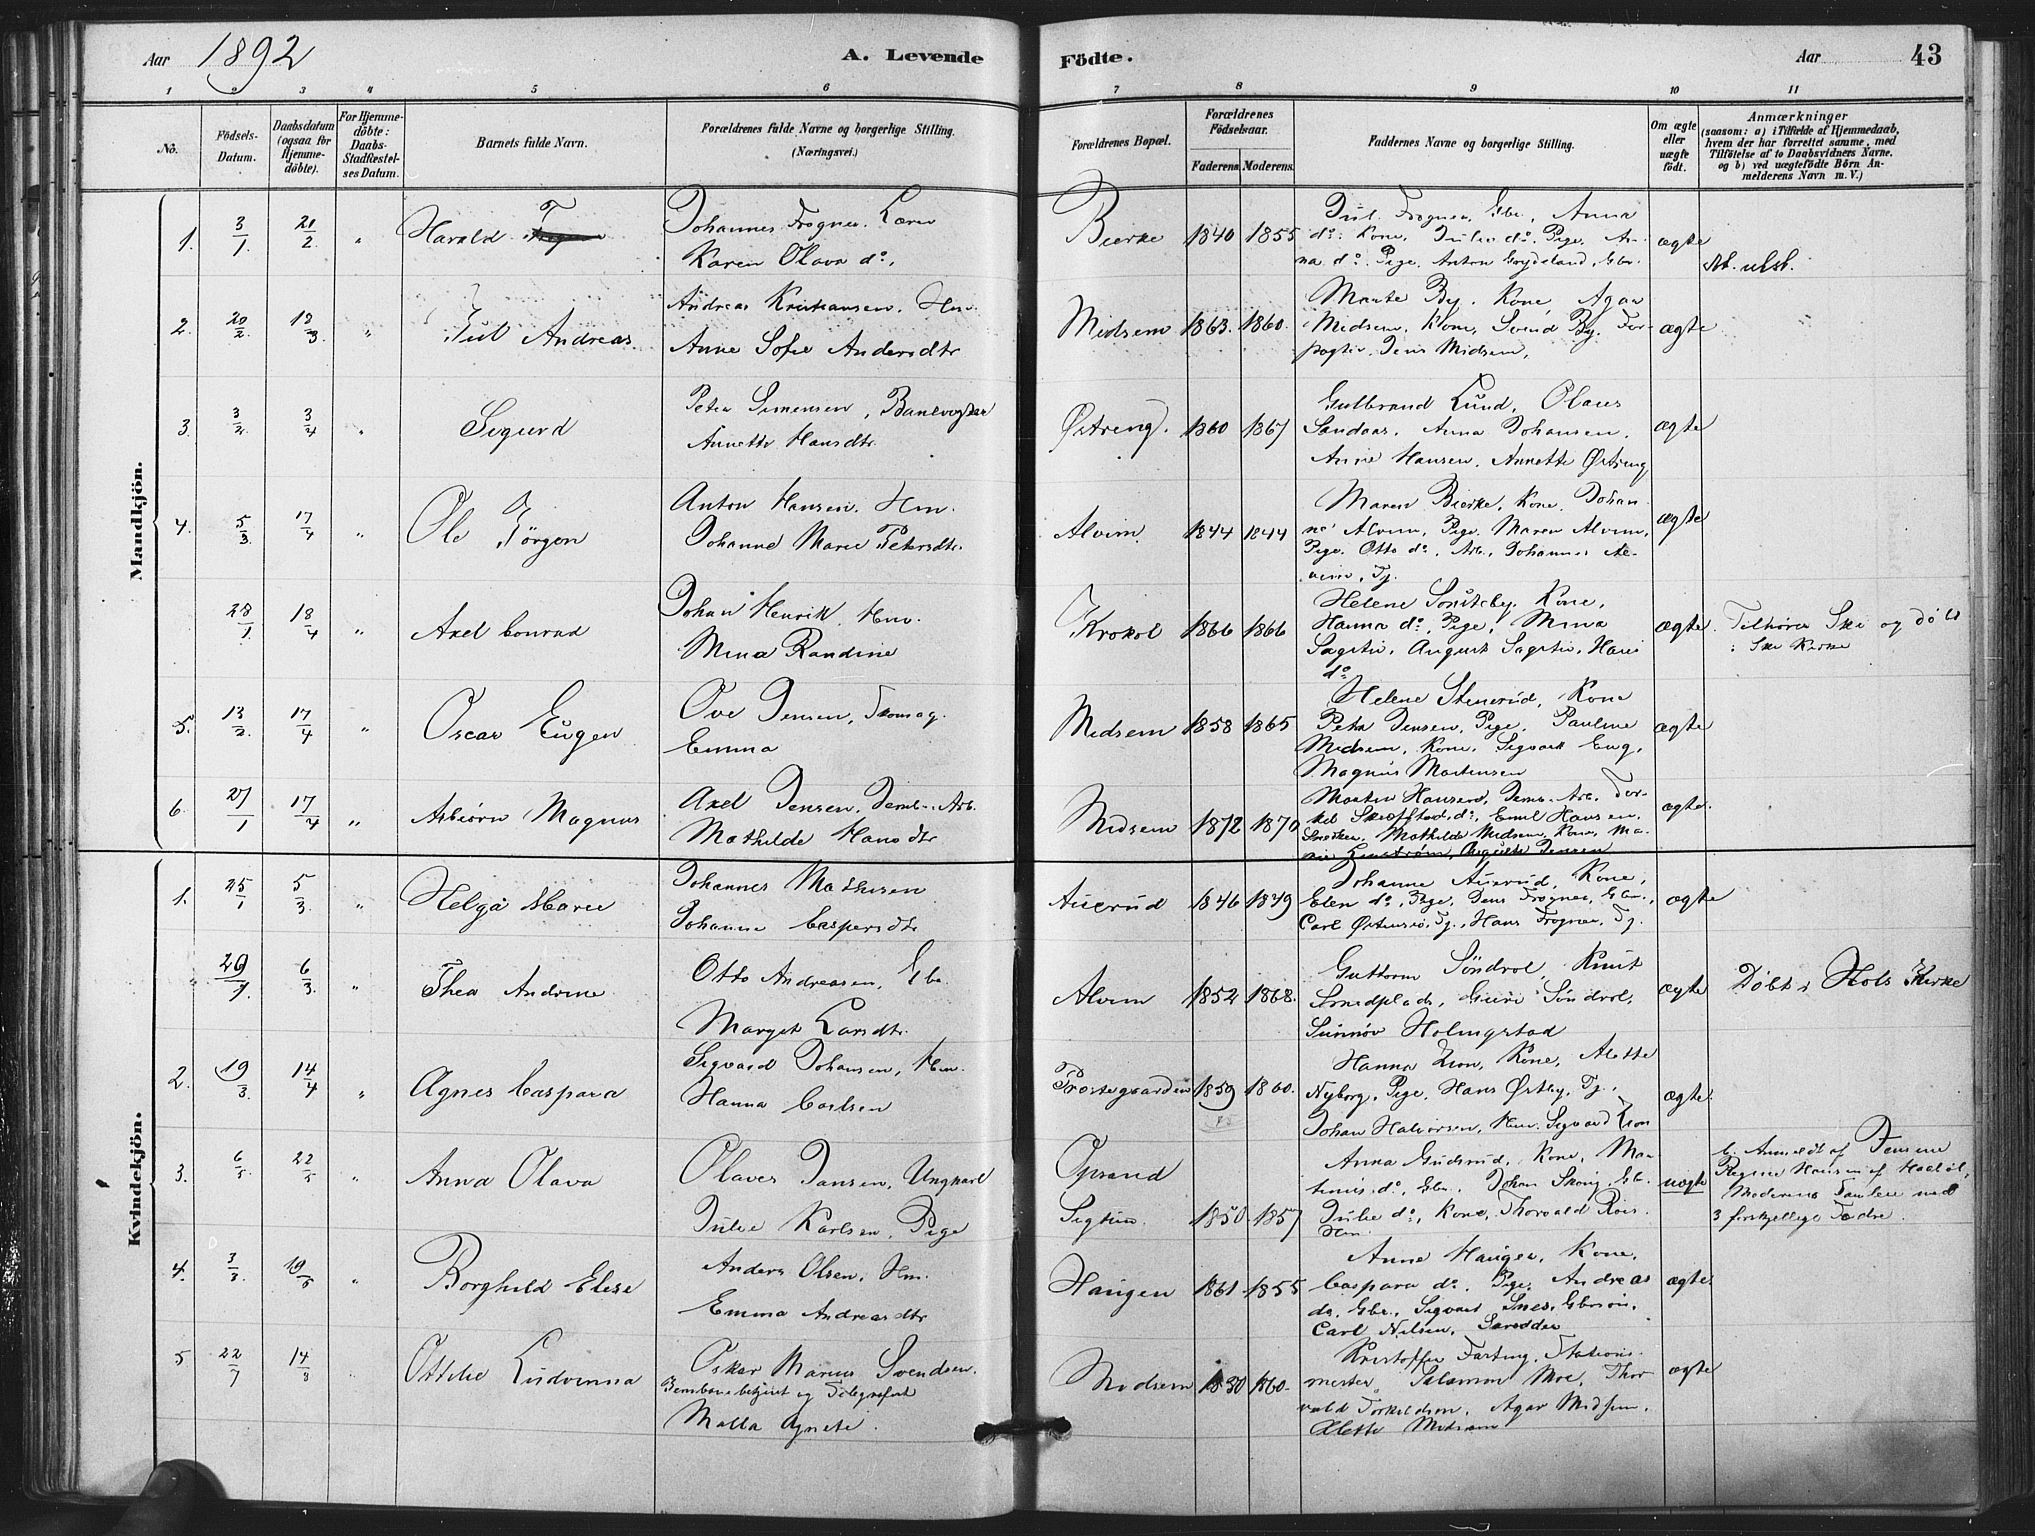 Aar 1892
A. Levende
Födte.
Aar
43
1 2 3 4 5 6 7 8 9 10 11
No.
Födsels-
Datum.
Daabsdatum
(ogsaa for
Hjemme-
döbte).
For Hjemme-
döbte:
Daabs-
Stadfæstel-
ses Datum.
Barnets fulde Navn.
Forældrenes fulde Navne og borgerlige Stilling.
(Næringsvei.)
Forældrenes Bopæl.
Forældrenes
Födselsaar.
Faderens.
Moderens.
Faddernes Navne og borgerlige Stilling.
Om ægte
eller
uægte
födt.
Anmærkninger
(saasom: a) i Tilfælde af Hjemmedaab,
hvem der har forrettet samme, med
Tilföielse af to Daabsvidners Navne.
og b) ved uægtefödte Börn An-
melderens Navn m. V.)
Mandkjön.
1. 3/1. 21/2 " Harald
Johannes Frogner. Lærer
Karen Olava do.
Bierke 1840 1855
Jul. Frogner, Gbr., Anna
do. Kone. Julie do. Pige. An-
na do. Pige. Anton Grydeland, Gbr.
ægte
2. 20/2. 13/3. " Jul Andreas
Andreas Kristiansen. Hm.
Anne Sofie Andersdtr
Midsem 1863. 1860.
Marte By. Kone Agar
Midsem, Kone, Svend By. For-
pagter. Jens Midsem.
ægte
3. 3/2. 3/4 " Sigurd
Peter Simensen, Banevogter
Annette Hansdtr.
Østreng. 1860 1867
Gulbrand Lund, Olaus
Sandaas. Anna Johansen.
Anne Hansen. Annette Østreng
ægte
4. 5/3. 17/4 " Ole Jørgen
Anton Hansen. Hm.
Johanne Marie Petersdtr.
Alvim. 1844 1844
Maren Bierke, Kone. Johan-
ne Alvim, Pige. Maren Alvim,
Pige. Otto do. Arb. Johannes Al-
vim, Tj.
ægte
28/1. 18/4 " Axel Conrad
Johan Henrik. Hm.
Mina Randine
Krokol 1866 1866
Helene Sonsteby. Kone,
Hanna do., Pige, Mina
Sagstu, August Sagstu, Hans
do.
ægte. Tilhører Ski og døbt
i Ski Kirke
5. 13/2. 17/4 " Oscar Eugen
Ove Jensen, Skomag.
Emma
Midsem 1858 1865
Helene Stenerud, Kone
Petra Jensen, Pige. Pauline
Midsem, Kone, Sigvart Eng,
Magnus Mortensen
ægte
6. 27/1 17/4 " Asbiørn Magnus
Axel Jensen. Jernb. Arb.
Mathilde Hansdtr
Midsem 1872 1870
Martin Hansen, Jernb. Arb. Tor-
kel Skrefstad, do., Emil Hansen,
Snedker. Mathilde Midsem, Kone, Ma-
Auguste Jensen
ægte.
Kvindekjön.
1. 25/1 5/3. " Helga Marie
Johannes Mathisen
Johanne Caspersdtr
Auerud 1846 1849
Johanne Auerud, Kone,
Elen do., Pige. Jens Frogner, Gbr.,
Carl Østensio, Tj., Hans Frogner, Tj.
ægte
" 29/1. 6/3. " Thea Andrine
Otto Andreasen, Gbr
Margit Larsdtr.
Alvim 1852 1868.
Guttorm Söndrol, Knut
Smedplads, Guri Söndrol,
Sunnøv Holmgstad
ægte Döbt i Hols Kirke
2. 19/3. 14/4 " Agnes Caspara
Sigvard Johansen, Hm.
Hanna Carlsen
Prestegaarden 1859 1860.
Hanna Lion, Kone, Alette
Nyborg, Pige, Hans Østby, Tj.,
Johan Halvorsen, Hm. Sigvard Lion
ægte.
3. 6/5 22/5 " Anna Olava
Olaves Jansen, Ungkarl
Julie Karlsen, Pige
Opsand
Sigtun. 1850. 1857
Anna Gudsrud, Kone, Ma-
tinus do., Gbr., Johan Skøug, Gbr.
Julie do., Kone, Thorvald Rois
Hm.
uægte
b. Anmeldt af Jensine
Regine Hansen af
Moderens Familie med
3 forskjellige Fædre.
4. 3/3. 19/5 " Borghild Elise
Anders Olsen, Hm.
Emma Andreasdtr
Haugen 1861 1855
Anne Haugen, Kone,
Caspara do. Pige, Andreas
do. Gbr., Sigvart Snes, Gbrsøn.
Carl Nilsen,
ægte.
5 22/7 14/8 Ottilie Ludvinna
Oskar Marius Svendsen.
Jernbanebetjent og Telegrafist
Malla Agnete.
Midsem 1830 1860.
Kristoffer Farting, Stations-
mester, Salamon Moe, Thor-
vald Torkildsen, Agar Midsem.
Alette Midsem
ægte